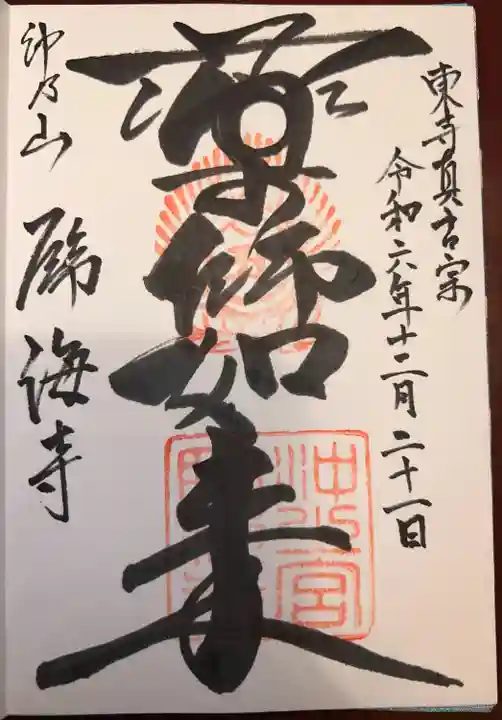 東寺真言宗
令和六年十二月二十一日
薬師如来
乃山
海寺